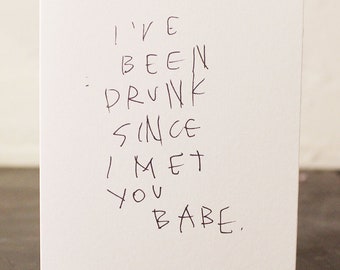 I'VE
BEEN
DRUNK
SINCE
I MET
YOU
BABE.